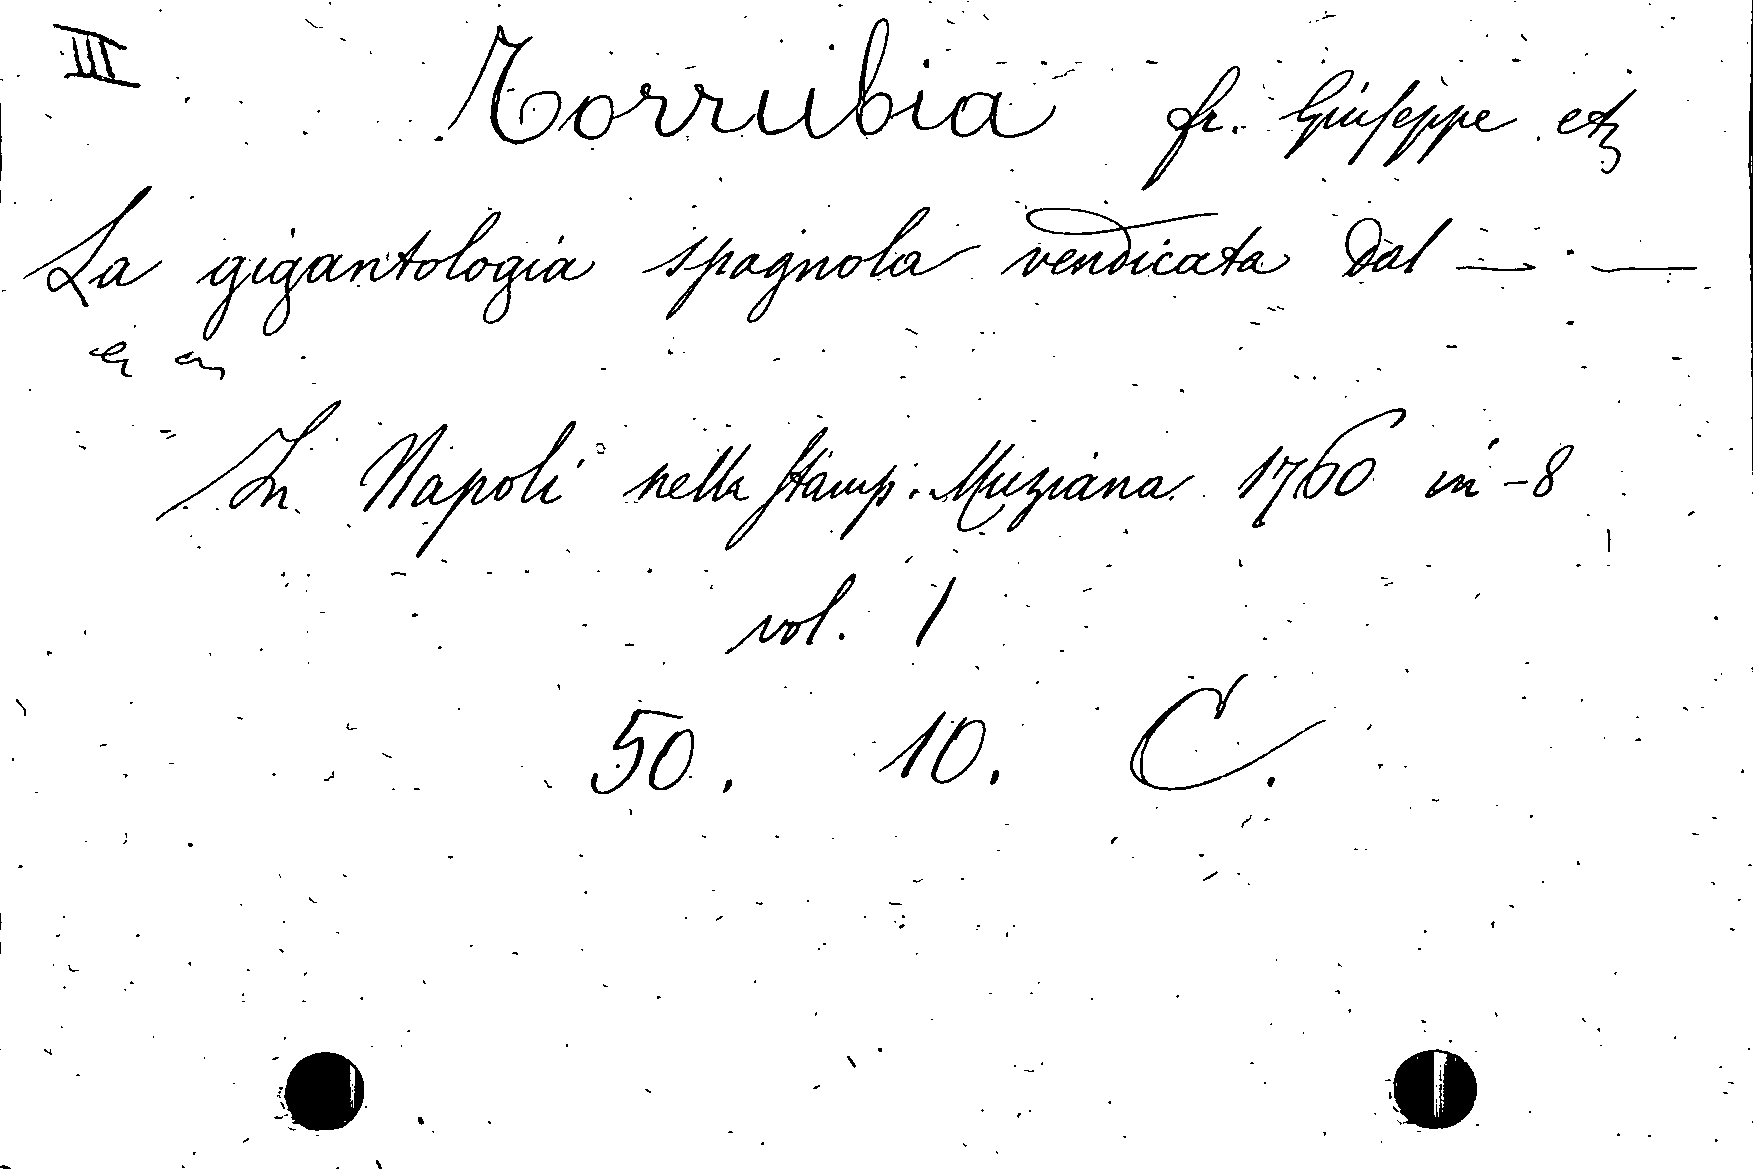 III Torrubia fr. Giuseppe etc
La gigantologia spagnola vendicata dal — —
In Napoli nella Stamp. Muziana 1760 in-8
vol. 1
50. 10. C.